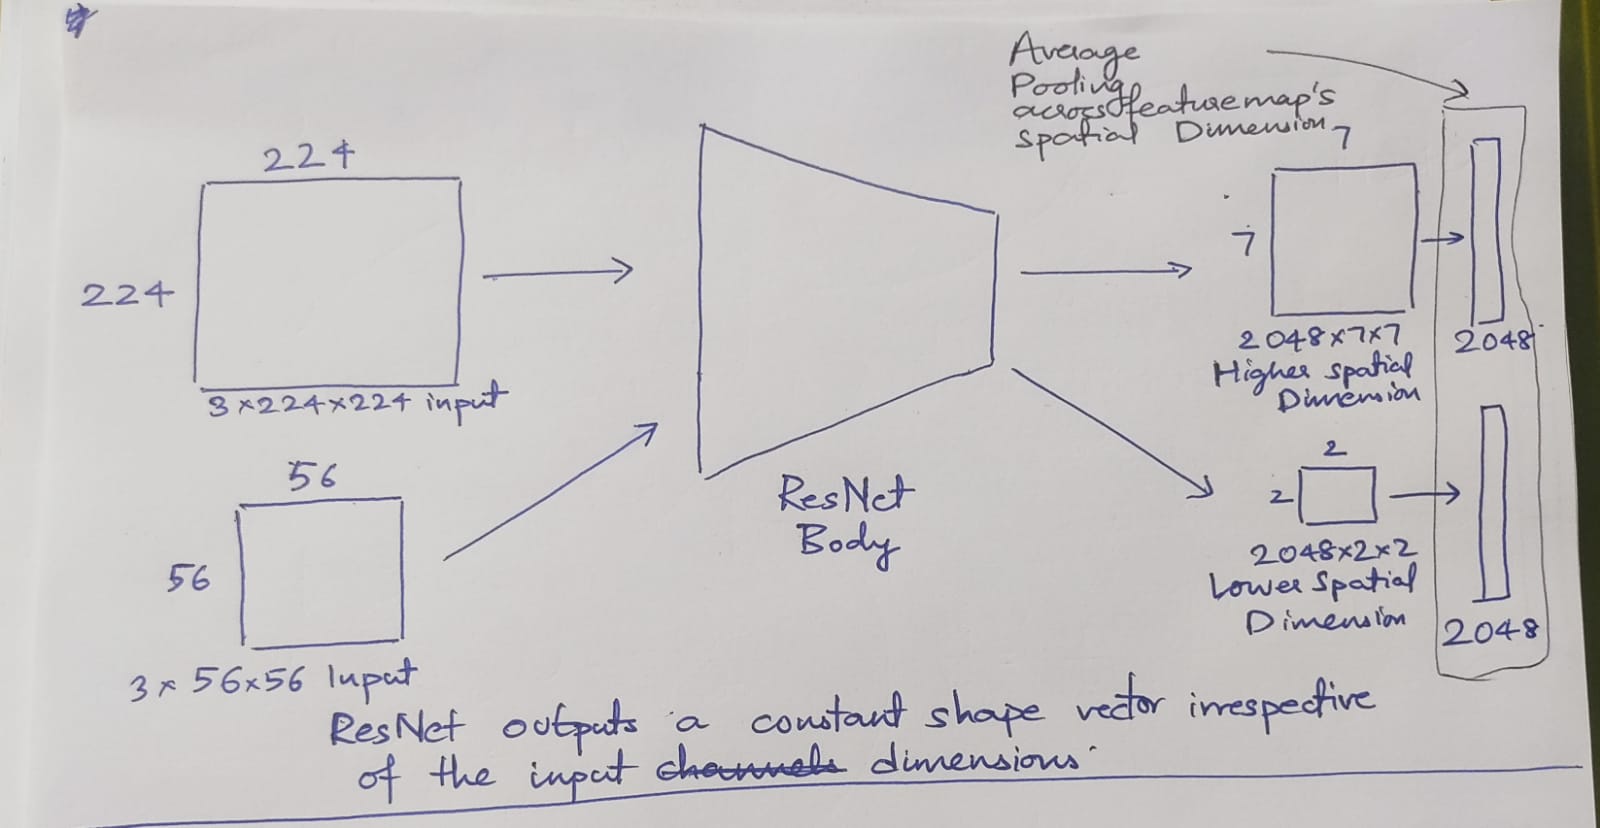 Average
Pooling
across featuremap's
spatial Dimension
224
224
3×224×224 input
56
56
3× 56×56 Input
ResNet
Body
7
7
2048×7×7
Higher spatial
Dimension
2048
2
2
2048×2×2
Lower Spatial
Dimension
2048
ResNet outputs a constant shape vector irrespective
of the input channels dimensions.